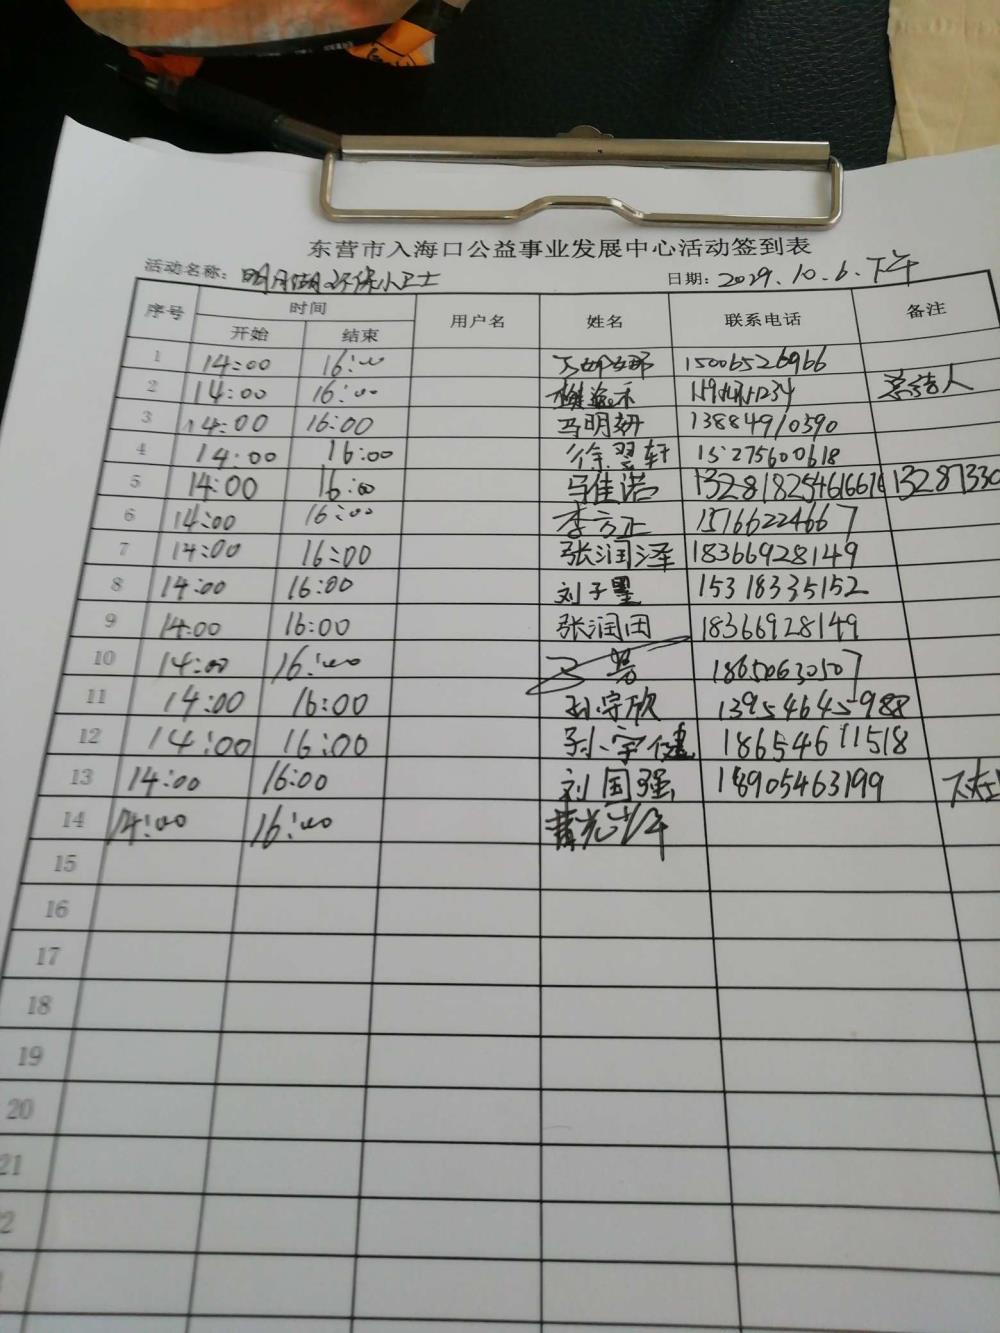 东营市入海口公益事业发展中心活动签到表
活动名称：明月湖环保小卫士 日期：2029.10.6.下午
序号 时间 用户名 姓名 联系电话 备注
开始 结束
1 14:00 16:00 15006526966
2 14:00 16:00
3 14:00 16:00 马明妍 13884910590
4 14:00 16:00 徐翌轩 15275600618
5 14:00 16:00 马佳诺
6 14:00 16:00 李方正 15766224667
7 14:00 16:00 张润泽 18366928149
8 14:00 16:00 刘子墨 15318335152
9 14:00 16:00 张润田 18366928149
10 14:00 16:00 18650630507
11 14:00 16:00 孙宇欣 13954645988
12 14:00 16:00 孙宇健 18654611518
13 14:00 16:00 刘国强 18905463199
14 14:00 16:00
15
16
17
18
19
20
21